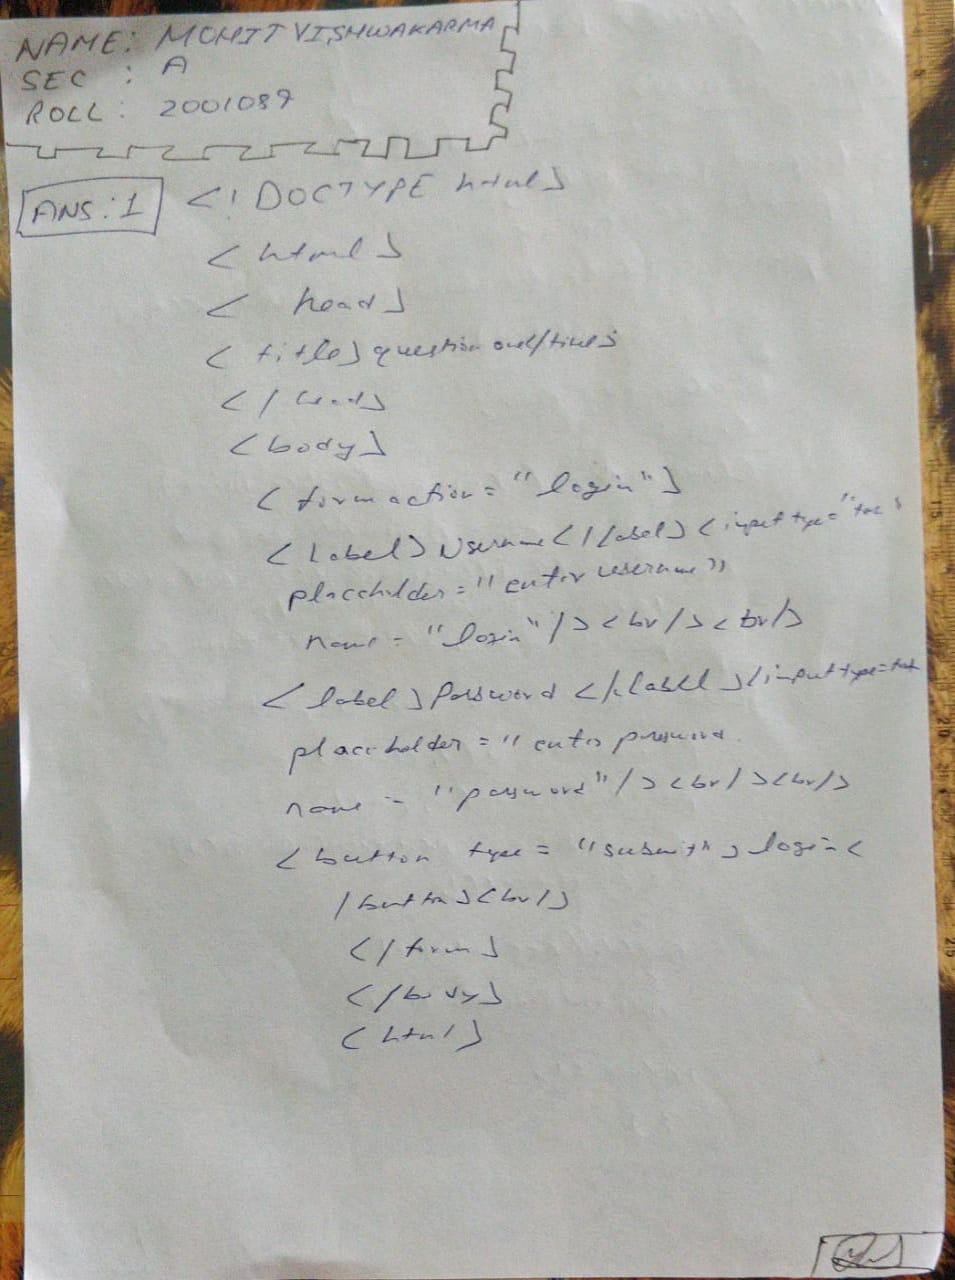 NAME: MOHIT VISHWAKARMA
SEC : A
ROLL: 2001089
ANS:1 <!DOCTYPE html>
<html>
< head>
<title>question one</title>
</head>
<body>
<form action="login">
<label>Username</label><input type="text"
placeholder="enter username"
name="login"/><br/><br/>
<label>Password </label><input type=text
placeholder="enter password
name="password"/><br/><br/>
<button type="submit">login<
/button><br/>
</form>
</body>
<html>